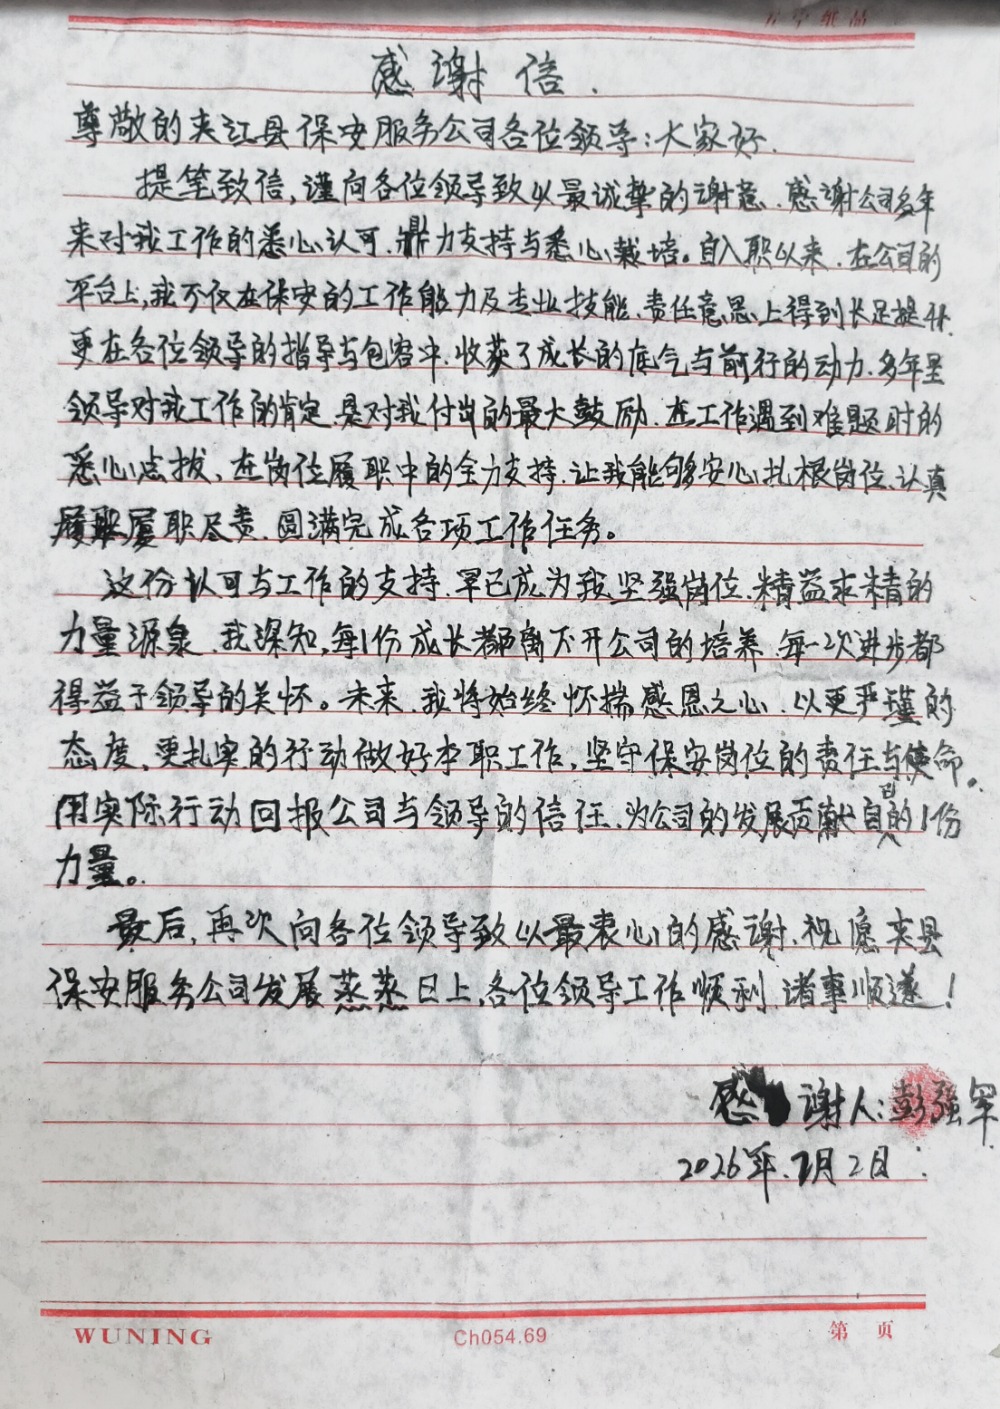 感谢信.
尊敬的夹江县保安服务公司各位领导:大家好.
提笔致信,谨向各位领导致以最诚挚的谢意.感谢公司多年
来对我工作的悉心认可.鼎力支持与悉心栽培。自入职以来.在公司的
平台上,我不仅在保安的工作能力及专业技能.责任意思上得到长足提升.
更在各位领导的指导与包容中.收获了成长的底气与前行的动力.多年至
领导对我工作的肯定.是对我付出的最大鼓励.在工作遇到难题时的
悉心点拔,在岗位履职中的全力支持.让我能够安心扎根岗位、认真
履职尽责.圆满完成各项工作任务。
这份认可与工作的支持.早已成为我坚强岗位、精益求精的
力量源泉.我深知,每1份成长都离不开公司的培养.每一次进步都
得益于领导的关怀。未来.我将始终怀揣感恩之心.以更严谨的
态度、更扎实的行动做好本职工作,坚守保安岗位的责任与使命。
用实际行动回报公司与领导的信任.为公司的发展贡献自己的1份
力量。
最后,再次向各位领导致以最衷心的感谢.祝愿夹县
保安服务公司发展蒸蒸日上,各位领导工作顺利.诸事顺遂!
感谢人:彭强
2026年.2月2日.
WUNING
Ch054.69
第 页